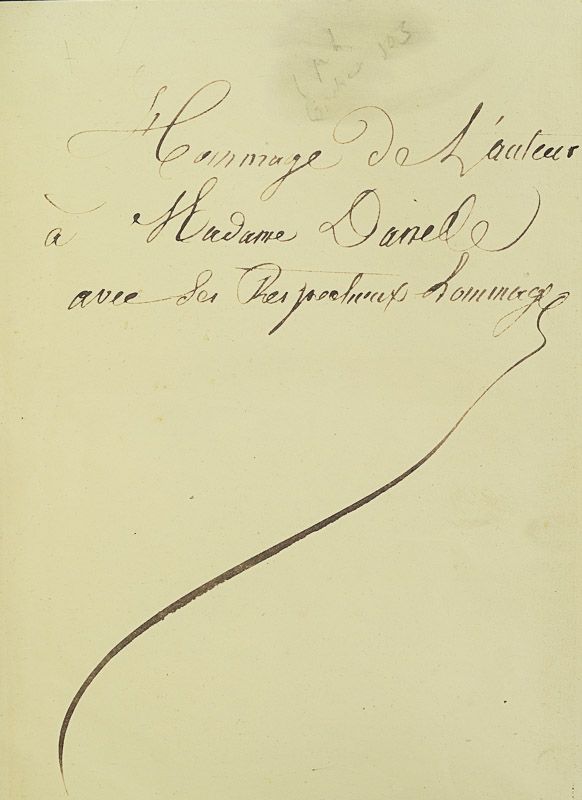 Hommage de L'auteur
à Madame Danel
avec Ses Respectueux hommage